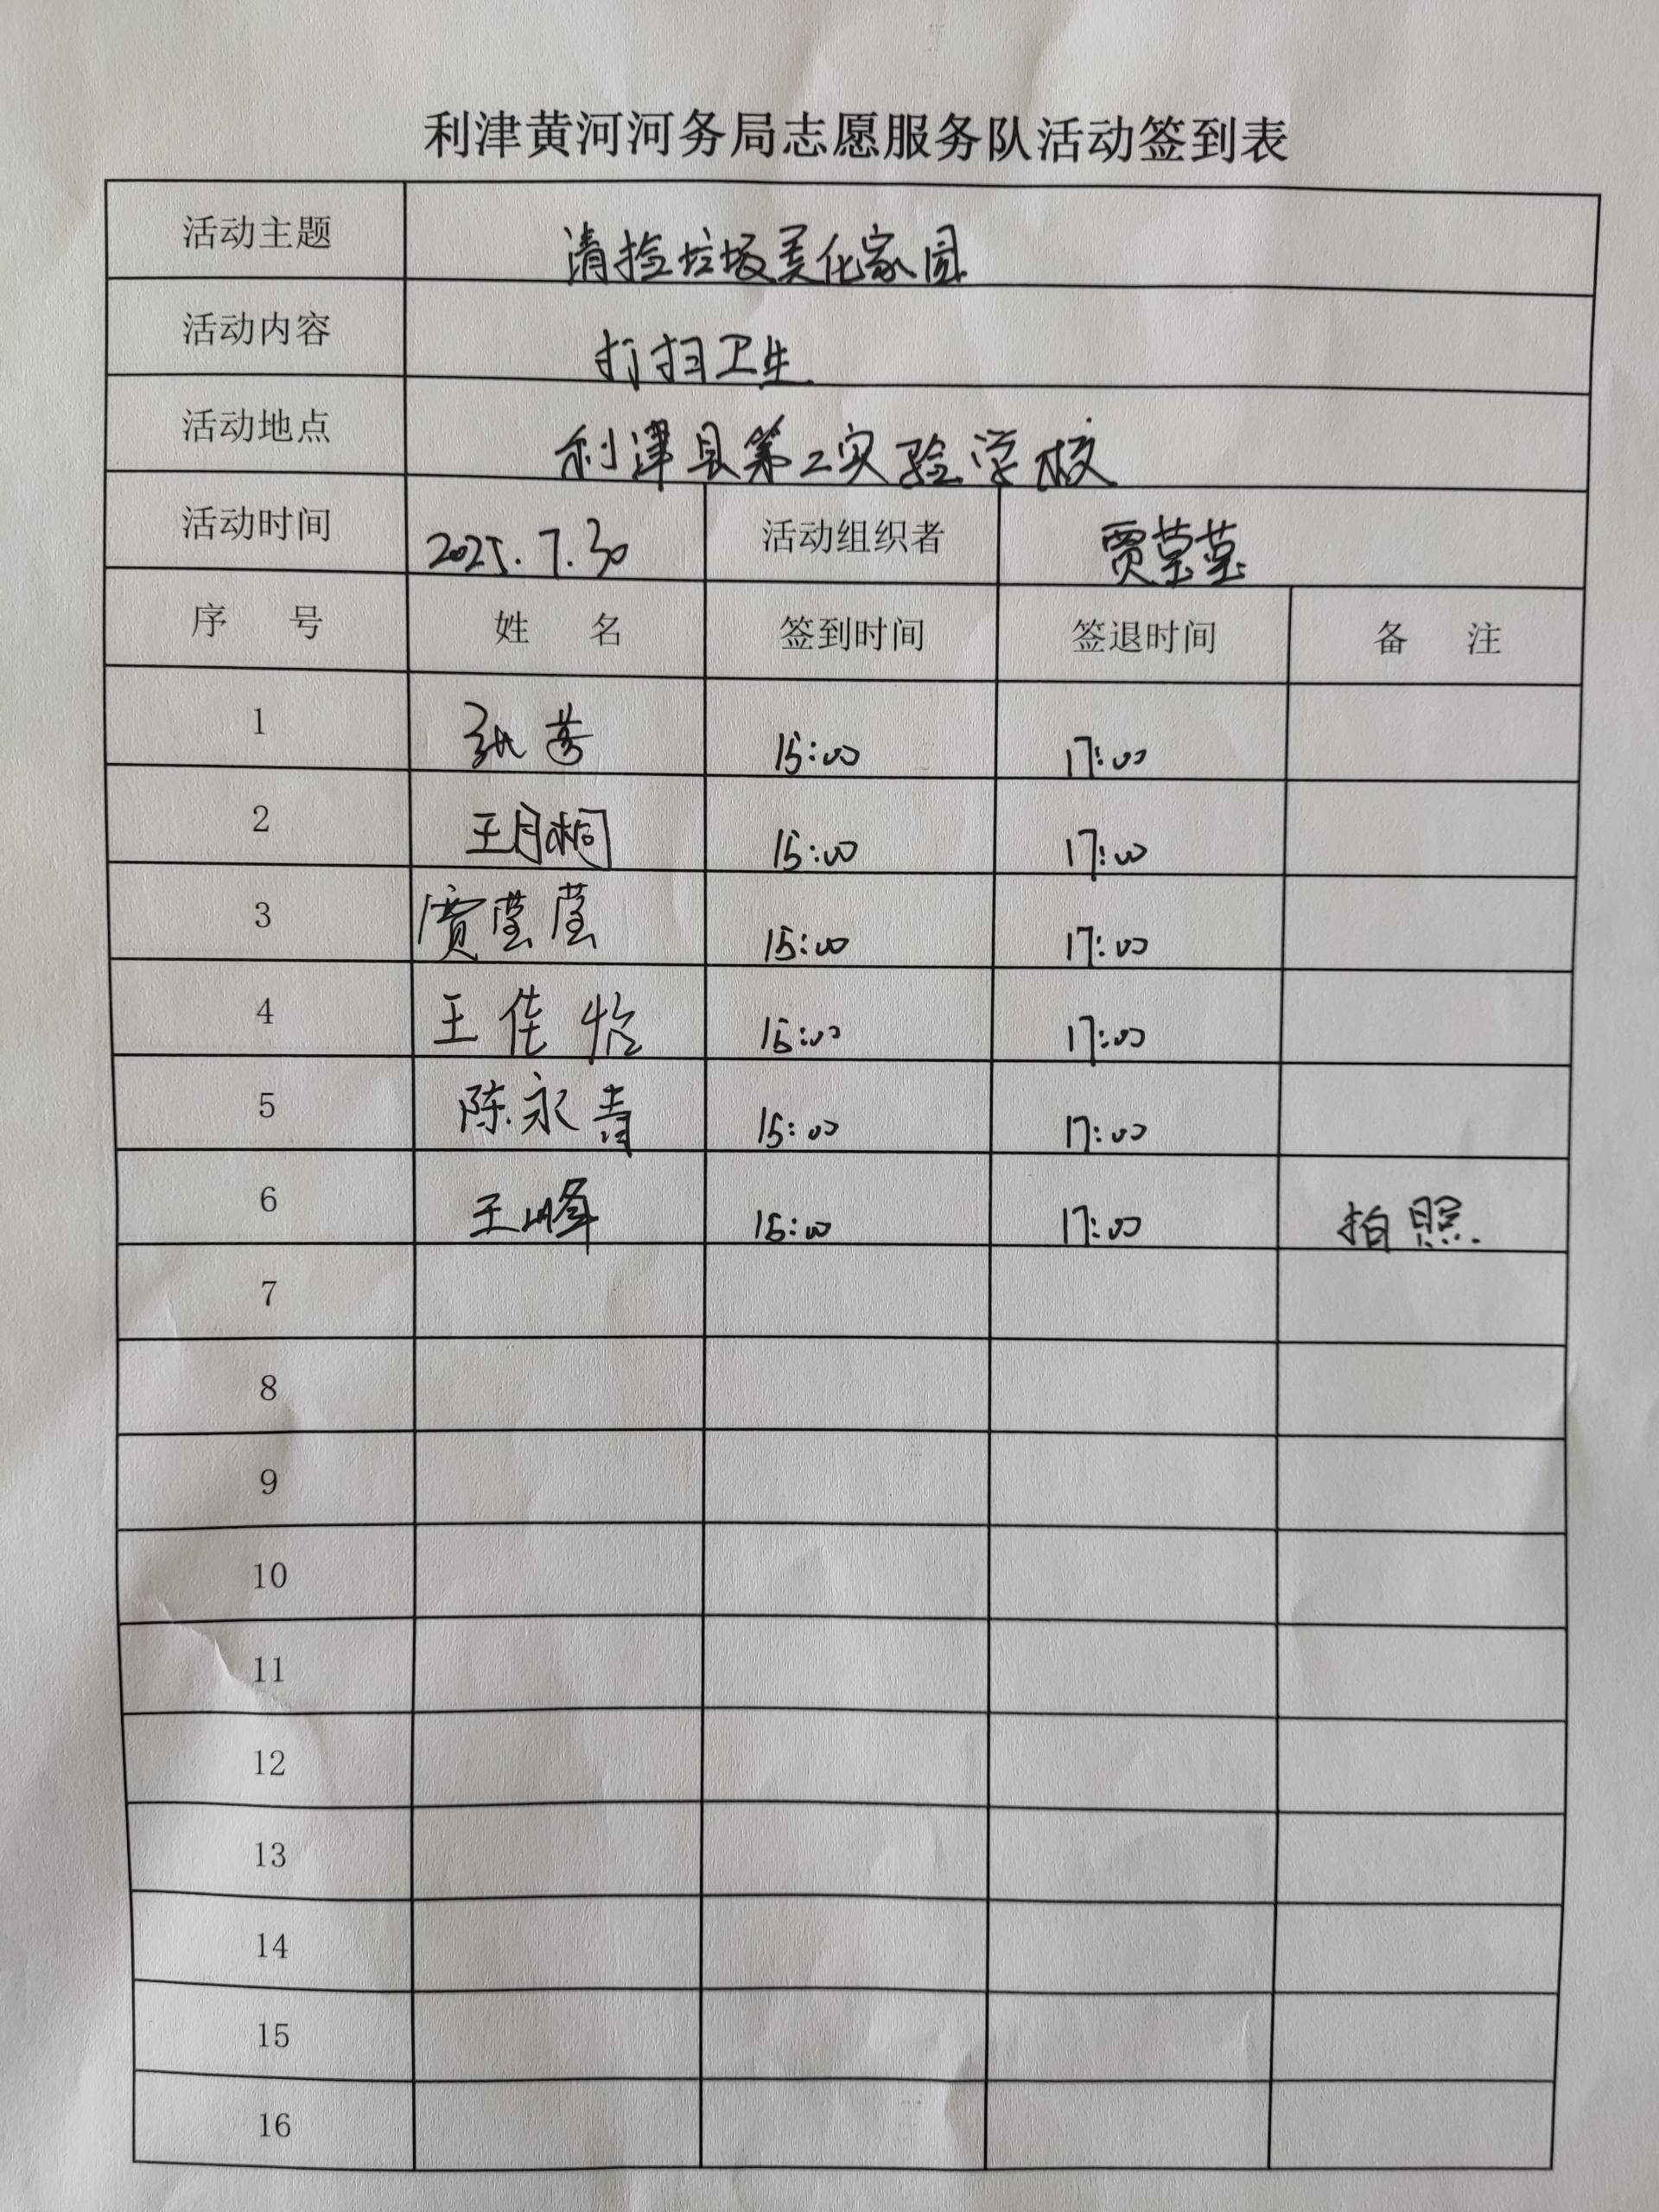 利津黄河河务局志愿服务队活动签到表
活动主题 清捡垃圾美化家园
活动内容 打扫卫生
活动地点 利津县第二实验学校
活动时间 2025.7.30 活动组织者 贾莹莹
序 号 姓 名 签到时间 签退时间 备 注
1 张 15:00 17:00
2 王月桐 15:00 17:00
3 贾莹莹 15:00 17:00
4 王佳怡 15:00 17:00
5 陈永青 15:00 17:00
6 王峰 15:00 17:00 拍照
7
8
9
10
11
12
13
14
15
16